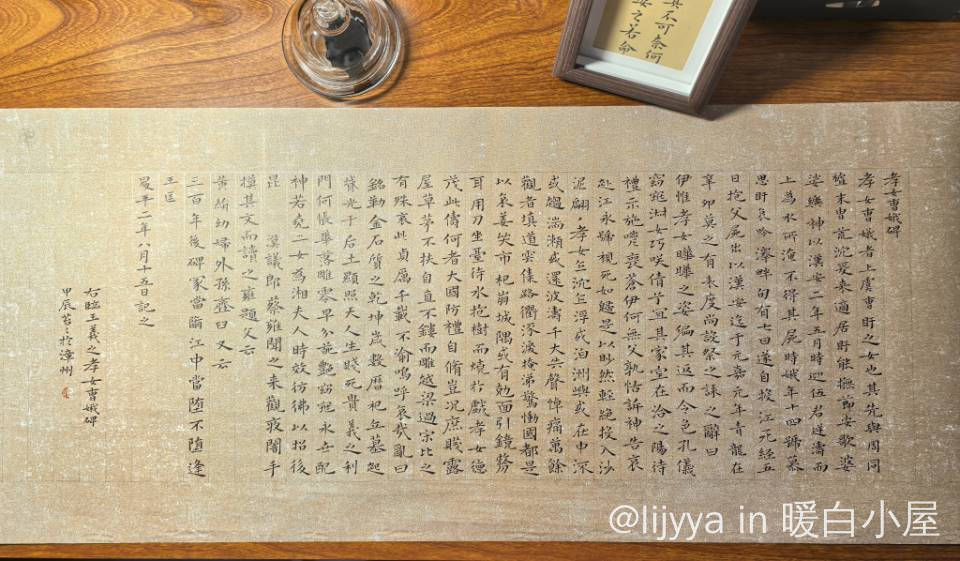 其不可奈何
安之若命
孝女曹娥碑
孝女曹娥者上虞曹盱之女也其先與周同
祖末冑荒沈爰来適居盱能撫節安歌婆
娑樂神以漢安二年五月時迎伍君逆濤而
上為水所淹不得其屍時娥年十四號慕
思盱哀吟澤畔旬有七日遂自投江死經五
日抱父屍出以漢安迄于元嘉元年青龍在
辛卯莫之有表度尚設祭之誄之辭曰
伊惟孝女曄曄之姿偏其返而令色孔儀
窈窕淑女巧咲倩兮宜其家室在洽之陽待
禮未施嗟喪蒼伊何無父孰怙訴神告哀
赴江永號視死如歸是以眇然輕絕投入沙
泥翩〻孝女乍沉乍浮或泊洲嶼或在中流
或趨湍瀨或還波濤千夫共聲悼痛萬餘
觀者填道雲集路衢流淚掩涕驚慟國都是
以哀姜哭市杞崩城隅或有勉面引鏡剺
耳用刀坐臺待水抱樹而燒於戲孝女德
茂此儔何者大國防禮自脩豈况庶賤露
屋草茅不扶自直不鏤而雕越梁過宋比之
有殊哀此貞厲千載不渝嗚呼哀哉亂曰
銘勒金石質之乾坤歲數曆祀立墓起
墳光于后土顯照天人生賤死貴義之利
門何悵華落雕零早分葩艷窈窕永世配
神若堯二女為湘夫人時效彷彿以招後
昆 漢議郎蔡雍聞之来觀夜闇手
摸其文而讀之雍題文云
黄絹幼婦外孫齏臼又云
三百年後碑冢當墮江中當墮不墮逢
王匡
昇平二年八月十五日記之
右臨王羲之孝女曹娥碑
甲辰菩〻於漳州
@lijyya in 暖白小屋